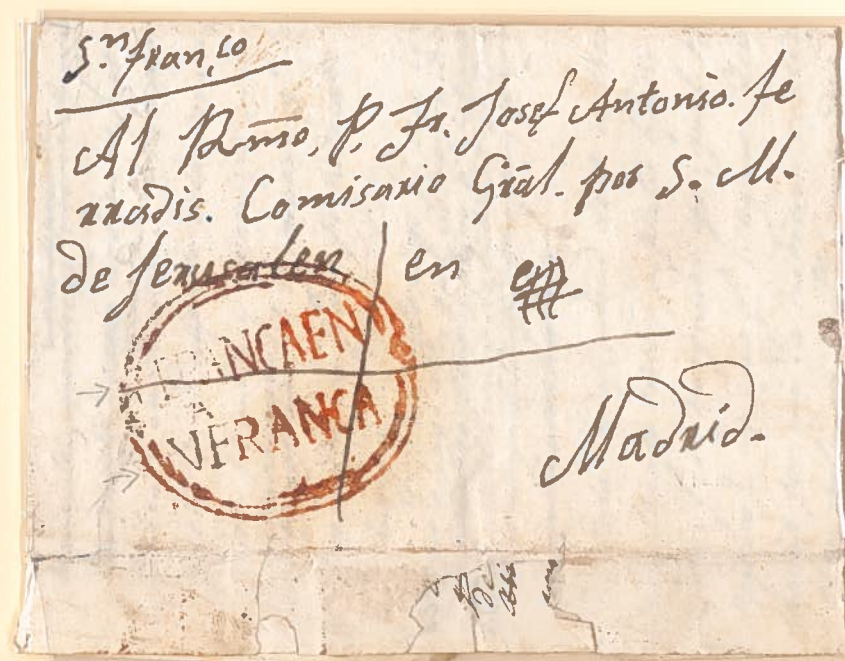 S.n fran,co
Al Rmo, P. Fr. Josef Antonio. fe
rradis. Comisario Gral. por S. M.
de Jerusalen, en
FRANCAEN
VFRANCA
Madrid.